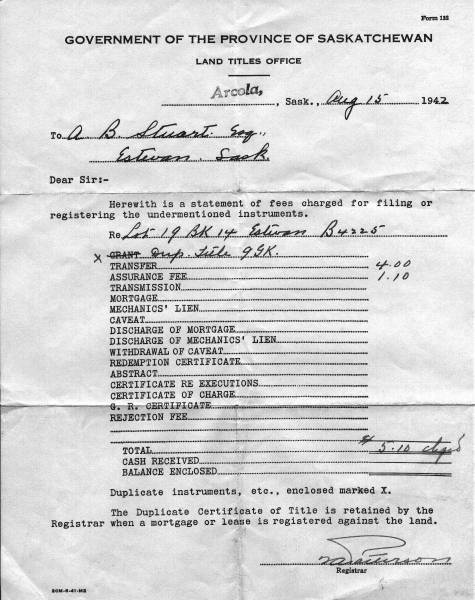 Form 152
GOVERNMENT OF THE PROVINCE OF SASKATCHEWAN
LAND TITLES OFFICE
Arcola, Sask., Aug 15 1942
To A B Stuart Esq.,
Estevan Sask.
Dear Sir:-
Herewith is a statement of fees charged for filing or
registering the undermentioned instruments.
Re Lot 19 BK 14 Estevan B4225
X GRANT Dup. title 9GK.
TRANSFER 4.00
ASSURANCE FEE 1.10
TRANSMISSION
MORTGAGE
MECHANICS' LIEN
CAVEAT
DISCHARGE OF MORTGAGE
DISCHARGE OF MECHANICS' LIEN
WITHDRAWAL OF CAVEAT
REDEMPTION CERTIFICATE
ABSTRACT
CERTIFICATE RE EXECUTIONS
CERTIFICATE OF CHARGE
G. R. CERTIFICATE
REJECTION FEE
TOTAL $ 5.10 chged
CASH RECEIVED
BALANCE ENCLOSED
Duplicate instruments, etc., enclosed marked X.
The Duplicate Certificate of Title is retained by the
Registrar when a mortgage or lease is registered against the land.
Registrar